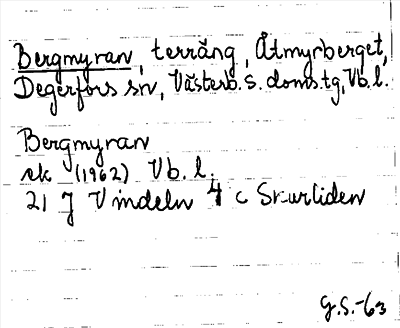 Bergmyran, terräng, Åtmyrberget,
Degerfors sn, Västerb. s. doms. tg, Vb. l.
Bergmyran
ek (1962) Vb. l.
21 J Vindeln 4 c Skurliden
G.S.-63